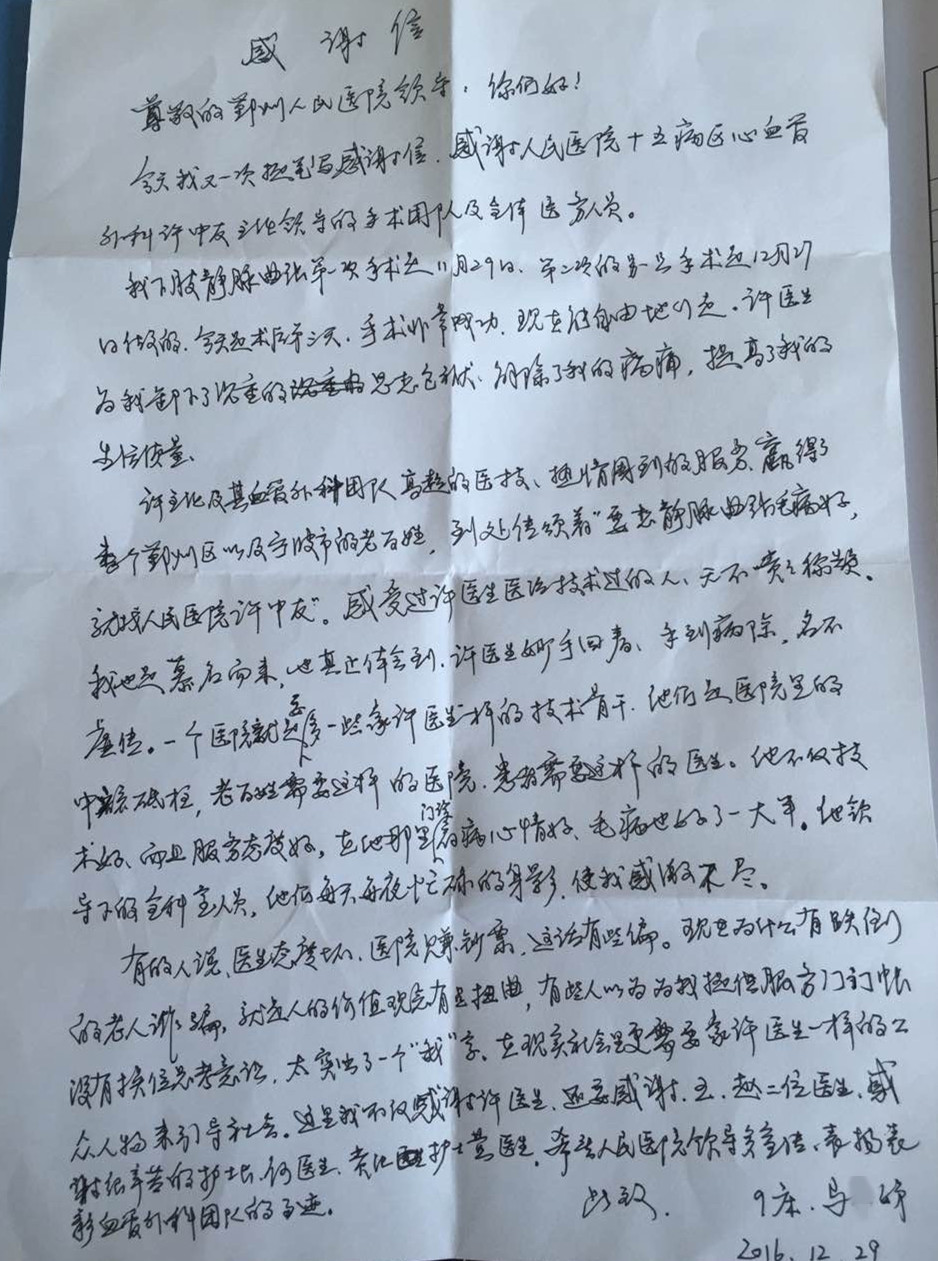 感谢信
尊敬的鄞州人民医院领导:你们好!
今天我又一次提笔写感谢信.感谢人民医院十五病区心血管
外科许中友主任领导的手术团队及全体医务人员。
我下肢静脉曲张第一次手术是11月29日.第二次的另一只手术是12月27
日做的.今天是术后第三天.手术非常成功.现在能自由地行走.许医生
为我卸下了沉重的思想包袱、解除了我的病痛,提高了我的
生活质量.
许主任及其血管外科团队高超的医技、热情周到的服务、赢得了
整个鄞州区以及宁波市的老百姓,到处传颂着"要去静脉曲张毛病好,
就找人民医院许中友"。感受过许医生医治技术过的人、无不啧啧称赞.
我也是慕名而来,也真正体会到.许医生妙手回春、手到病除,名不
虚传。一个医院就是要多一些象许医生一样的技术骨干.他们是医院里的
中流砥柱,老百姓需要这样的医院.患者需要这样的医生。他不仅技
术好、而且服务态度好,在他那里门诊看病心情好、毛病也好了一大半。他领
导下的全科室人员,他们每天每夜忙碌的身影,使我感激不尽。
有的人说、医生态度坏、医院只赚钞票,这话有些偏。现在为什么有跌倒
的老人诈骗,就是人的价值观念有些扭曲,有些人以为为我提供服务门门帐
没有换位思考意识,太突出了一个"我"字.在现实社会里更需要象许医生一样的公
众人物来引导社会。这里我不仅感谢许医生.还要感谢.王.赵二位医生,感
谢很辛苦的护士长.何医生.护士 医生.希望人民医院领导多宣传、表扬表
彰血管外科团队的事迹。
此致.
9床.马
2016.12.29